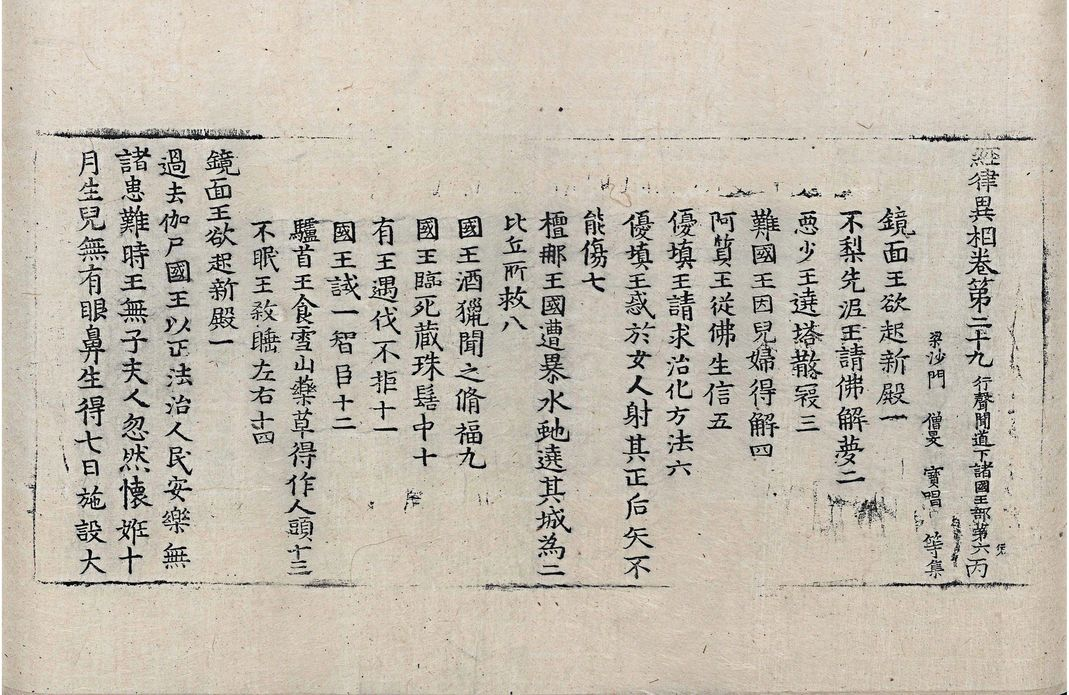 經律異相卷第二十九 行聲聞道下諸國王部第六 丙
梁沙門 僧旻 寶唱 等集
鏡面王欲起新殿一
不梨先泥王請佛解夢二
惡少王遶塔散寇三
難國王因兒婦得解四
阿質王從佛生信五
優填王請求治化方法六
優填王惑於女人射其正后矢不
能傷七
檀那王國遭暴水虵遶其城為二
比丘所救八
國王酒獵聞之脩福九
國王臨死藏珠髻中十
有王遇伐不拒十一
國王試一智臣十二
驢首王食雪山藥草得作人頭十三
不眠王敎睡左右十四
鏡面王欲起新殿一
過去伽尸國王以正法治人民安樂無
諸患難時王無子夫人忽然懷姙十
月生兒無有眼鼻生得七日施設大